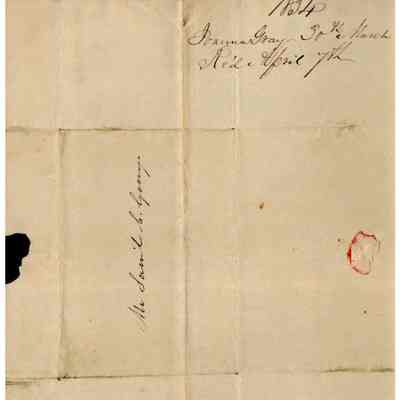 1834
Joanna Gray 30th March
Rc'd April 7th
Mr Saml C. Gray